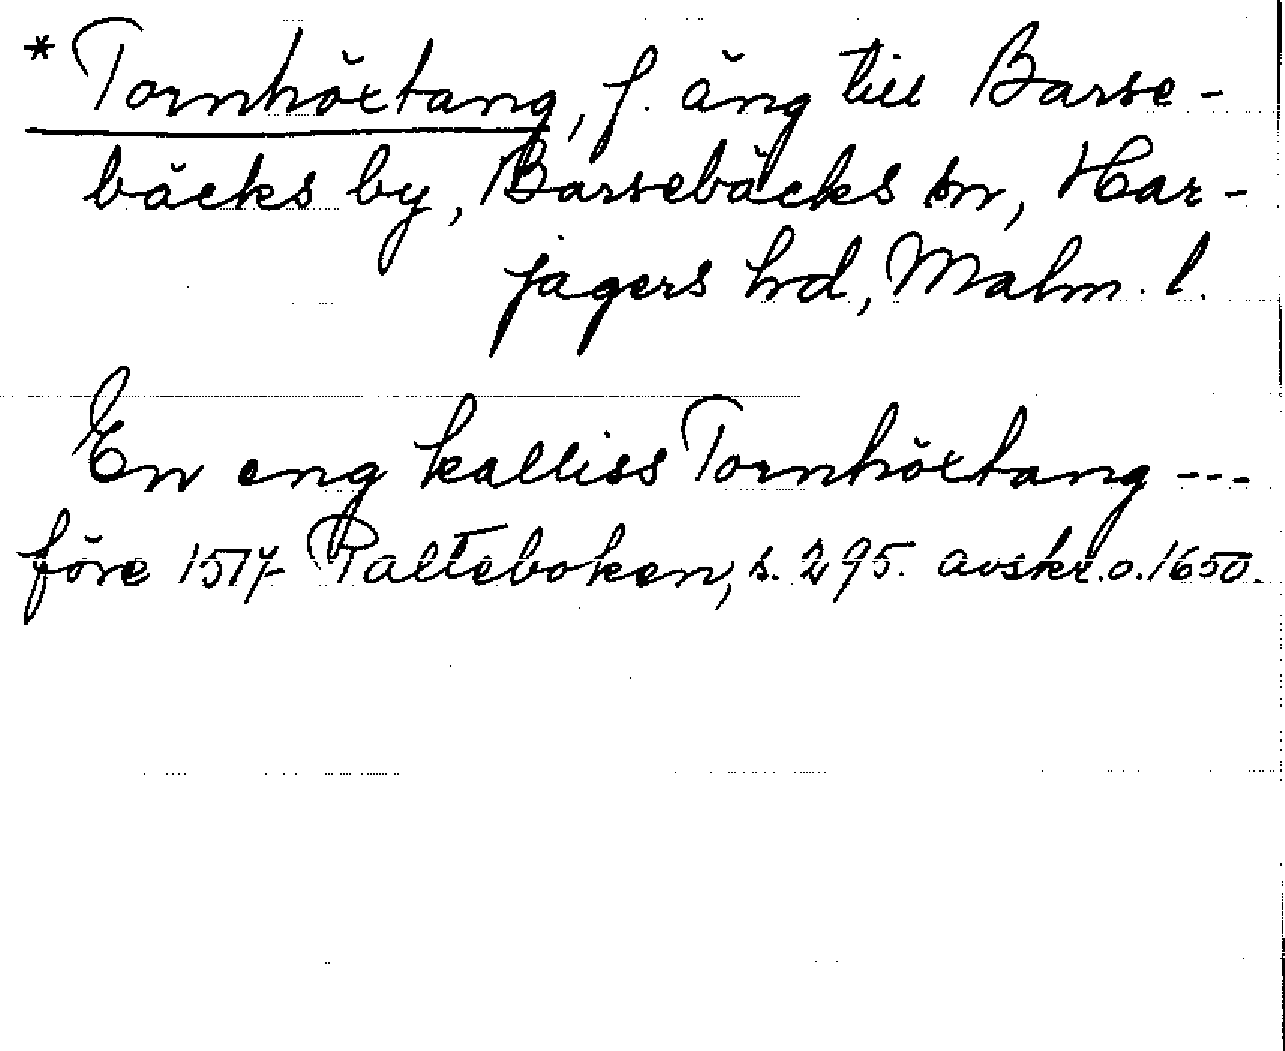 * Tornhöxtang, f. äng till Barse-
bäcks by, Barsebäcks sn, Har-
jagers hrd, Malm. l.
En eng kalliss Tornhöxtang ---
före 1517 Palteboken, s. 295. avskr. o. 1650.